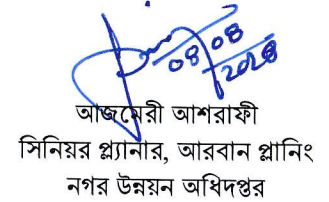 08/08/2024
আজমেরী আশরাফী
সিনিয়র প্ল্যানার, আরবান প্লানিং
নগর উন্নয়ন অধিদপ্তর